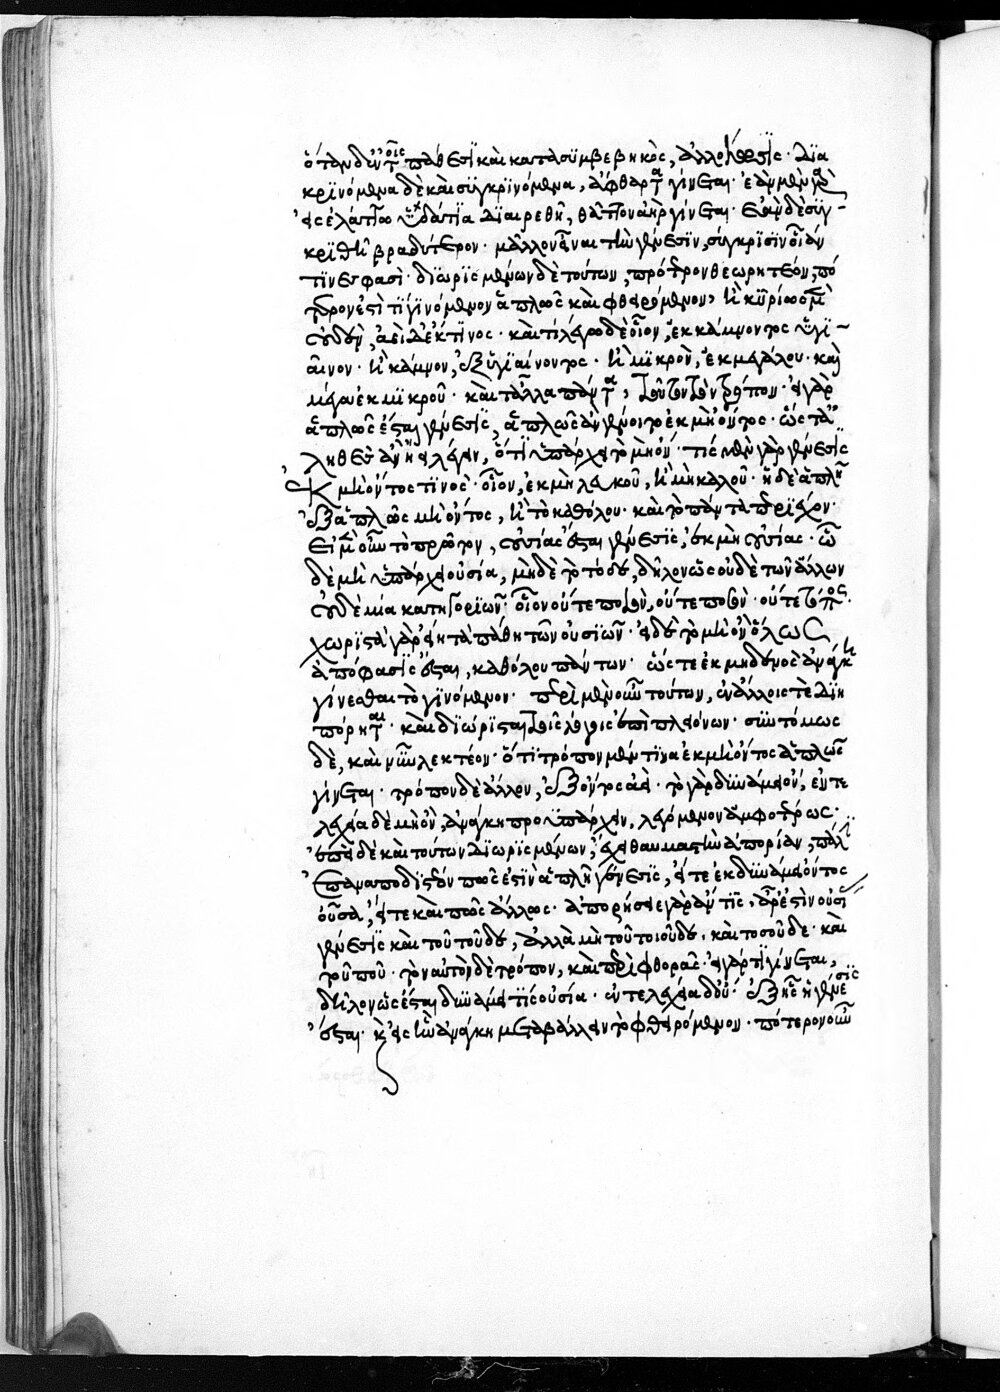 ὅταν δ' ἐν τοῖς πάθεσϊ καὶ κατασυμβεβηκὸς, ἀλλοίωσϊς· δϊα
κρϊνόμενα δὲ καὶ συγκρϊνόμενα, εὔφθαρτα γίνεται· ἐὰν μὲν γὰρ
εἰς ἐλάττω ὑδάτϊα διαιρεθῆ, θᾶττον ἀὴρ γίνεται· ἐὰν δὲ συγ-
κρϊθῆ βραδύτερον· μᾶλλον εἶναι τὴν γένεσϊν, σύγκρϊσϊν οἵαν
τϊνές φασϊ· δϊωρϊσμένων δὲ τούτων, πρότερον θεωρητέον, πό
τερον ἐστί τϊ γϊνόμενον ἁπλῶς καὶ φθειρόμενον, ἢ κυρίως μὲν
οὐδὲν, ἀεὶ δ' ἔκ τϊνος· καὶ τὶ λέγω δὲ οἷον, ἐκ κάμνοντος ὑγϊ-
αῖνον· ἢ κάμνον, ἐξ ὑγϊαίνοντος· ἢ μϊκρὸν, ἐκ μεγάλου· καὶ
μέγα ἐκ μϊκροῦ· καὶ τἄλλα πάντα, τοῦτον τὸν τρόπον· εἰ γὰρ
ἁπλῶς ἔσται γένεσϊς, ἁπλῶς ἂν γένοιτο ἐκ μὴ ὄντος· ὥστ' ἀ
ληθὲς ἂν εἴη λέγειν, ὅτϊ ὑπάρχει τὸ μὴ ὄν· τὶς μὲν γὰρ γένεσϊς
ἐκ μὴ ὄντος τϊνὸς· οἷον, ἐκ μὴ λευκοῦ, ἢ μὴ καλοῦ· ἡ δὲ ἁπλῆ
ἐξ ἁπλῶς μὴ ὄντος, ἢ τὸ καθόλου· καὶ τὸ πάντα περϊέχον·
εἰ μὲν οὖν τὸ πρῶτον, οὐσίας ἔσται γένεσϊς, ἐκ μὴ οὐσίας· ὧ
δὲ μὴ ὑπάρχει οὐσία, μηδὲ τὸ τόδε, δῆλον ὡς οὐδὲ τῶν ἄλλων
οὐδεμία κατηγορϊῶν· οἷον οὔτε ποιὸν, οὔτε ποσὸν· οὔτε
χωρϊστὰ γὰρ εἴη τὰ πάθη τῶν οὐσϊῶν· εἰ δὲ τὸ μὴ ὂν ὅλως
ἀπόφασϊς ἔσται, καθόλου πάντων· ὥστε ἐκ μηδενὸς ἀνάγκη
γίνεσθαι τὸ γϊνόμενον· περὶ μὲν οὖν τούτων, ἐν ἄλλοις τὲ δϊη
πόρηται· καὶ δϊώρϊσται τοῖς λόγοις ἐπὶ πλεῖον· συντόμως
δὲ, καὶ νῦν λεκτέον· ὅτϊ τρόπον μέν τϊνα ἐκ μὴ ὄντος ἁπλῶς
γίνεται· τρόπον δὲ ἄλλον, ἐξ ὄντος ἀεὶ· τὸ γὰρ δυνάμει ὂν, ἐντε
λεχεία δὲ μὴ ὂν, ἀνάγκη προϋπάρχειν, λεγόμενον ἀμφοτέρως·
ἐπεὶ δὲ καὶ τούτων δϊωρϊσμένων, ἔχει θαυμαστὴν ἀπορίαν, πάλϊν
ἐπαναποδϊστέον πῶς ἐστϊν ἁπλῆ γένεσϊς, εἴτε ἐκ δυνάμει ὄντος
οὖσα, εἴτε καὶ πῶς ἄλλως· ἀπορήσειε γὰρ ἄν τϊς, ἆρ' ἐστὶν οὐσί
γένεσϊς καὶ τοῦ τοῦδε, ἀλλὰ μὴ τοῦ τοιοῦδε, καὶ τοσοῦδε· καὶ
τοῦ ποῦ· τὸν αὐτὸν δὲ τρόπον, καὶ περὶ φθορᾶς· εἰ γάρ τϊ γίνεται,
δῆλον ὡς ἔσται δυνάμει τϊς οὐσία· ἐντελεχεία δ' οὔ· ἐξ ἧς ἡ γένεσϊς
ἔσται· καὶ εἰς ἣν ἀνάγκη μεταβάλλειν τὸ φθειρόμενον· πότερον οὖν